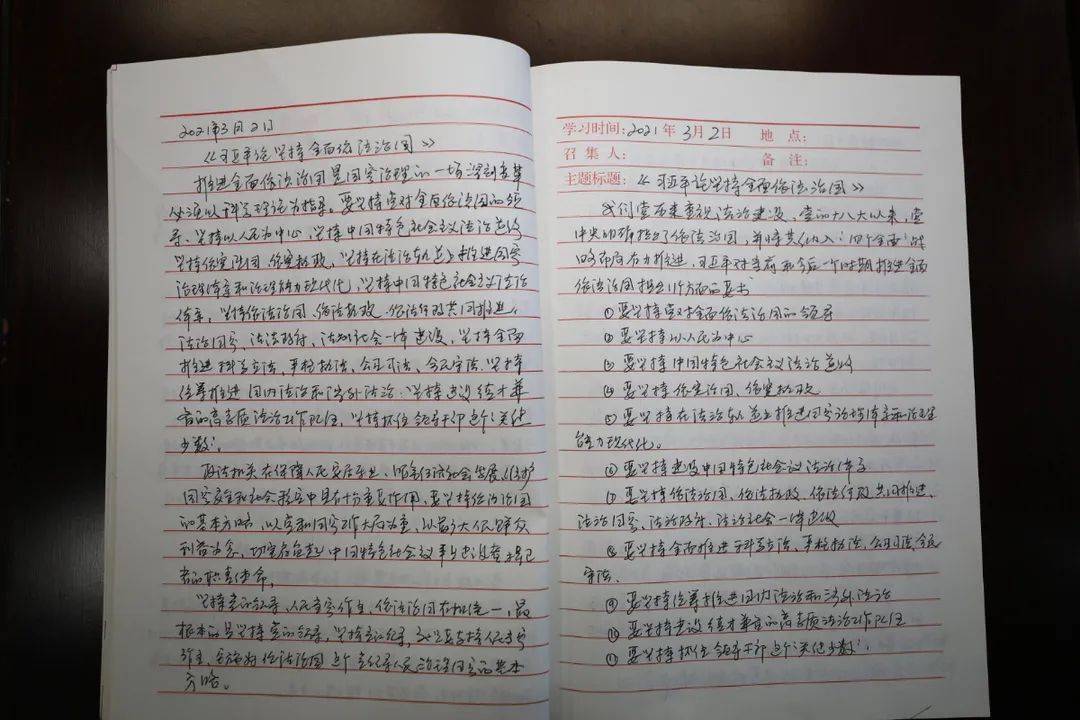 2021年3月2日
《习近平论坚持全面依法治国》
推进全面依法治国是国家治理的一场深刻变革
必须以科学理论为指导。要坚持党对全面依法治国的领
导、坚持以人民为中心，坚持中国特色社会主义法治道路
坚持依宪治国、依宪执政，坚持在法治轨道上推进国家
治理体系和治理能力现代化，坚持中国特色社会主义法治
体系，坚持依法治国、依法执政、依法行政共同推进，
法治国家、法治政府、法治社会一体建设，坚持全面
推进科学立法、严格执法、公正司法、全民守法，坚持
统筹推进国内法治和涉外法治，坚持建设德才兼
备的高素质法治工作队伍，坚持抓住领导干部这个"关键
少数"。
政法机关在保障人民安居乐业、服务经济社会发展、维护
国家安全和社会稳定中具有十分重要作用，要坚持依法治国
的基本方略，以党和国家工作大局为重，以最广大人民群众
利益为念，切实肩负起中国特色社会主义事业建设者捍卫
者的职责使命。
坚持党的领导、人民当家作主、依法治国有机统一，最
根本的是坚持党的领导，坚持党的领导，就是要支持人民当家
作主，实施好依法治国这个党领导人民治理国家的基本
方略。
学习时间：2021年3月2日 地 点：
召 集 人： 备 注：
主题标题：《习近平论坚持全面依法治国》
我们党历来重视法治建设，党的十八大以来，党
中央明确提出了依法治国，并将其纳入"四个全面"战
略布局有力推进，习近平对当前和今后一个时期推进全面
依法治国提出11个方面的要求
①要坚持党对全面依法治国的领导
②要坚持以人民为中心
③要坚持中国特色社会主义法治道路
④要坚持依宪治国、依宪执政
⑤要坚持在法治轨道上推进国家治理体系和治理
能力现代化。
⑥要坚持建设中国特色社会主义法治体系
⑦要坚持依法治国、依法执政、依法行政共同推进、
法治国家、法治政府、法治社会一体建设
⑧要坚持全面推进科学立法、严格执法、公正司法、全民
守法、
⑨要坚持统筹推进国内法治和涉外法治
⑩要坚持建设德才兼备的高素质法治工作队伍
⑪要坚持抓住领导干部这个"关键少数"。